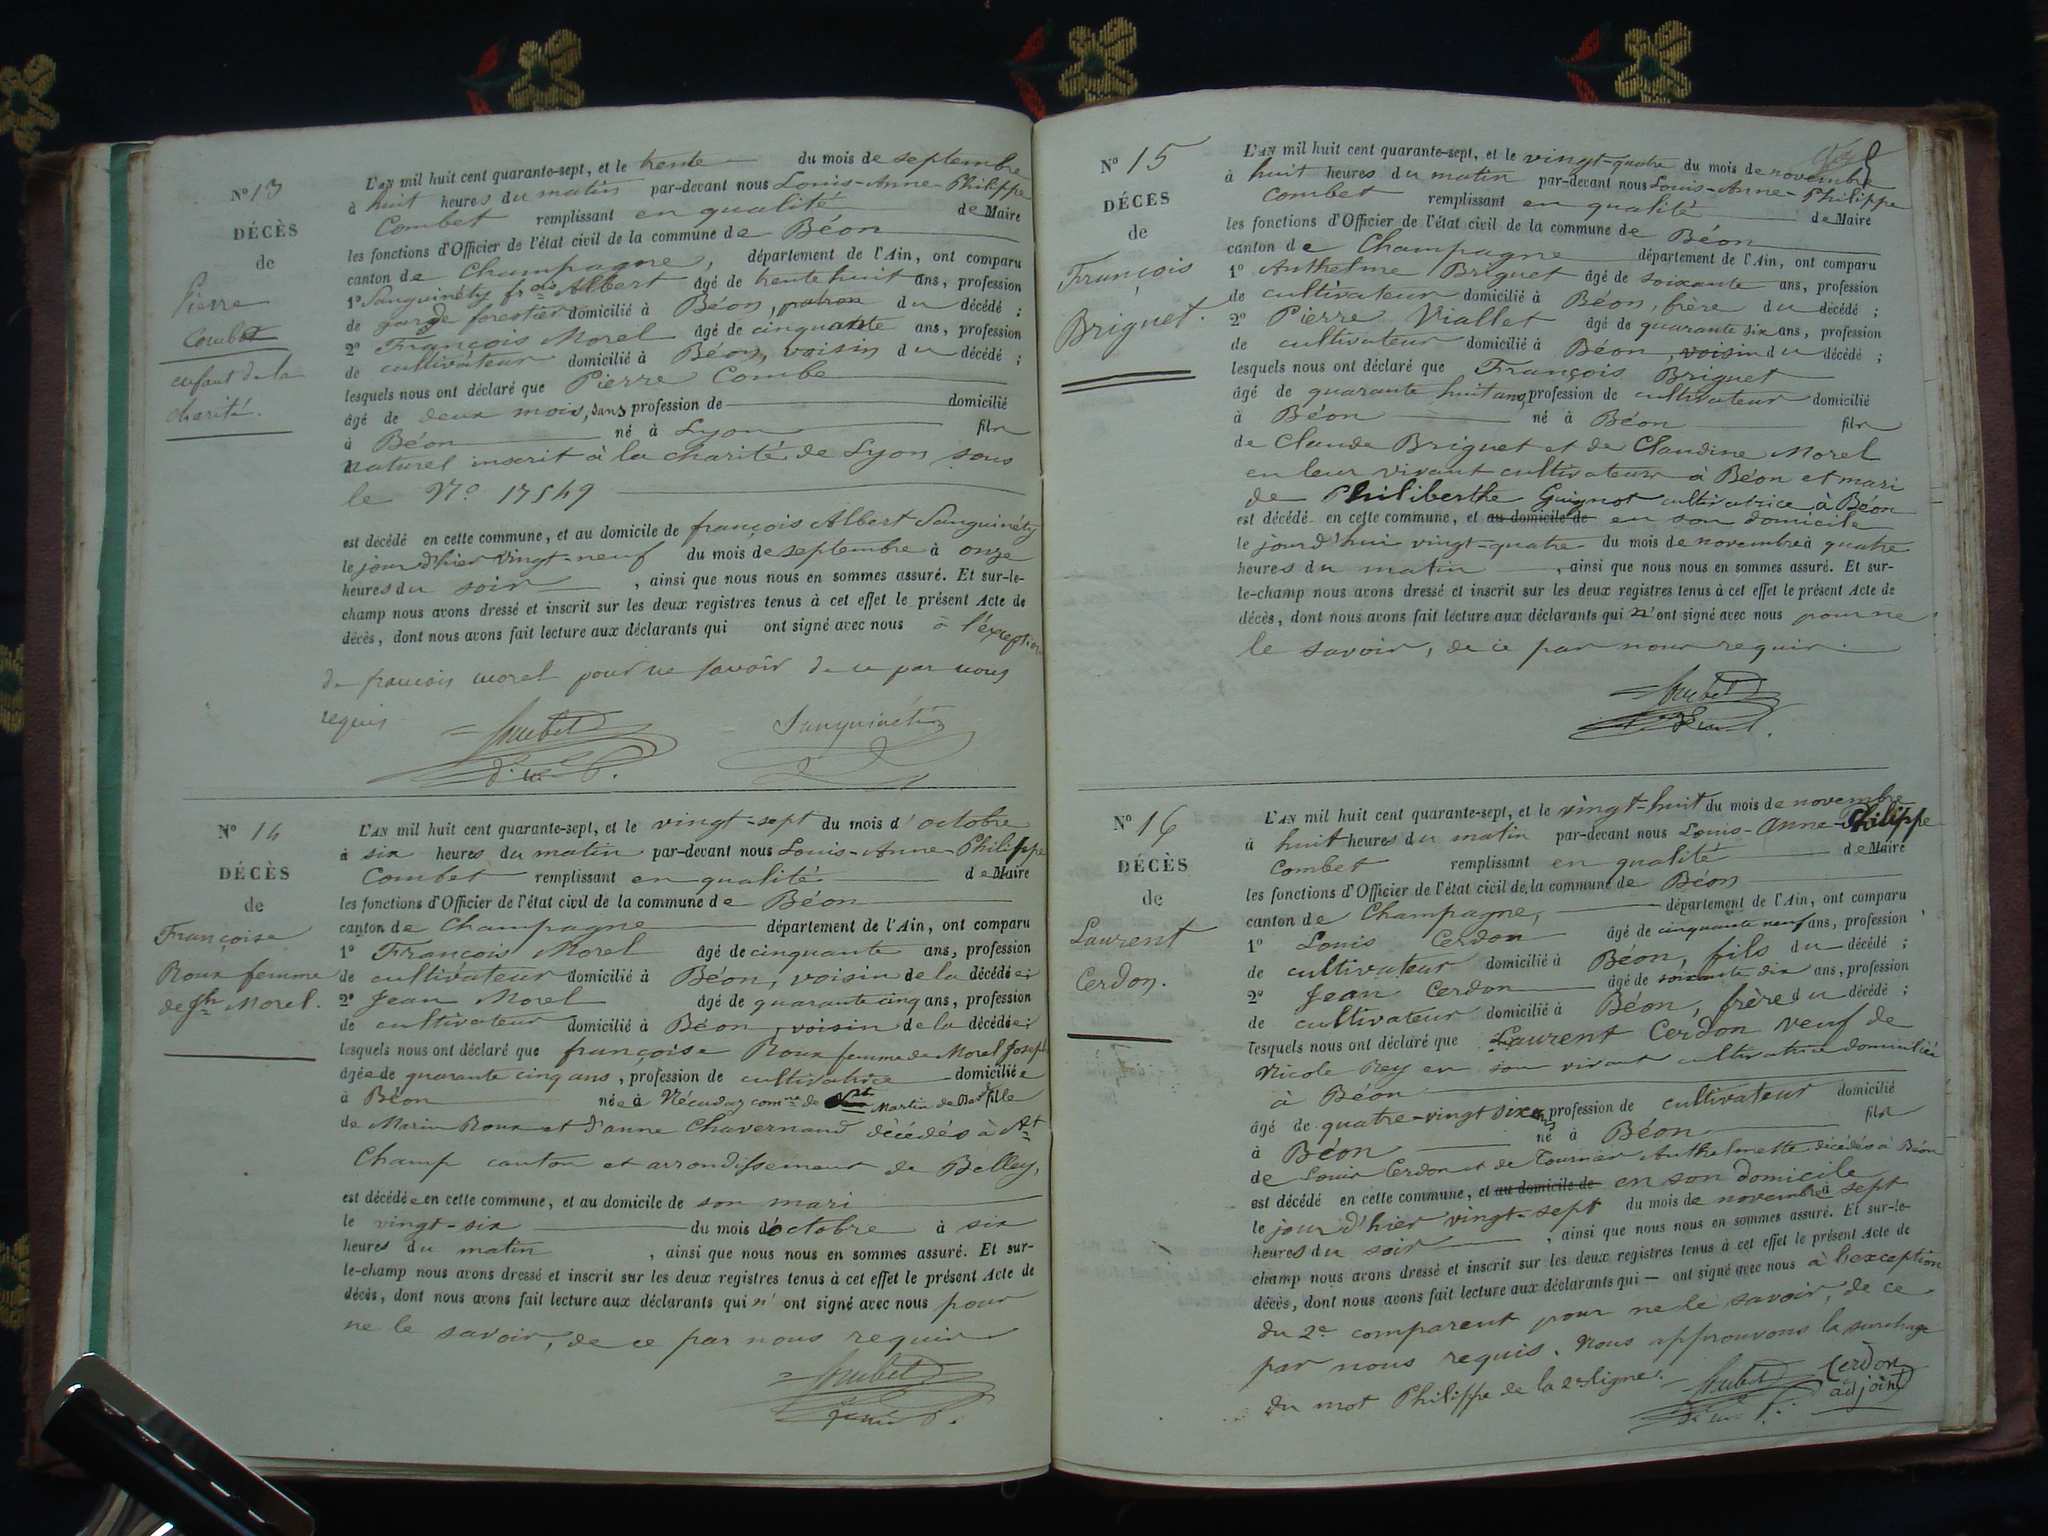 N° 13
DÉCÈS
de
Pierre
Combet
enfant de la
charité.
L'AN mil huit cent quarante-sept, et le trente du mois de septembre
à huit heures du matin par-devant nous Louis-Anne-Philippe
Combet remplissant en qualité de Maire
les fonctions d'Officier de l'état civil de la commune de Béon
canton de Champagne, département de l'Ain, ont comparu
1° Sanguinéty frois Albert âgé de trente huit ans, profession
de garde forestier domicilié à Béon, patron du décédé ;
2° François Morel âgé de cinquante ans, profession
de cultivateur domicilié à Béon, voisin du décédé ;
lesquels nous ont déclaré que Pierre Combe
âgé de deux mois, sans profession de domicilié
à Béon né à Lyon fils
naturel inscrit à la charité de Lyon sous
le N° 17549
est décédé en cette commune, et au domicile de françois Albert Sanguinéty
le jour d'hier vingt-neuf du mois de septembre à onze
heures du soir , ainsi que nous nous en sommes assuré. Et sur-le-
champ nous avons dressé et inscrit sur les deux registres tenus à cet effet le présent Acte de
décès, dont nous avons fait lecture aux déclarants qui ont signé avec nous à l'exception
de francois morel pour ne savoir de ce par nous
requis
Combet Sanguinéty
N° 14
DÉCÈS
de
Françoise
Roux femme
de Jh Morel.
L'AN mil huit cent quarante-sept, et le vingt-sept du mois d'octobre
à six heures du matin par-devant nous Louis-Anne-Philippe
Combet remplissant en qualité de Maire
les fonctions d'Officier de l'état civil de la commune de Béon
canton de Champagne département de l'Ain, ont comparu
1° François Morel âgé de cinquante ans, profession
de cultivateur domicilié à Béon, voisin de la décédée ;
2° Jean Morel âgé de quarante cinq ans, profession
de cultivateur domicilié à Béon, voisin de la décédée ;
lesquels nous ont déclaré que françoise Roux femme de Morel Joseph
âgée de quarante cinq ans, profession de cultivatrice domiciliée
à Béon née à comne de St Martin de Bav fille
de Marin Roux et d'anne Chavernaud décédés à St
Champ canton et arrondissement de Belley,
est décédée en cette commune, et au domicile de son mari
le vingt-six du mois d'octobre à six
heures du matin , ainsi que nous nous en sommes assuré. Et sur-
le-champ nous avons dressé et inscrit sur les deux registres tenus à cet effet le présent Acte de
décès, dont nous avons fait lecture aux déclarants qui n'ont signé avec nous pour
ne le savoir, de ce par nous requis
Combet
N° 15
DÉCÈS
de
François
Briguet.
L'AN mil huit cent quarante-sept, et le vingt-quatre du mois de novembre
à huit heures du matin par-devant nous Louis-Anne-Philippe
Combet remplissant en qualité de Maire
les fonctions d'Officier de l'état civil de la commune de Béon
canton de Champagne département de l'Ain, ont comparu
1° Anthelme Briguet âgé de soixante ans, profession
de cultivateur domicilié à Béon, frère du décédé ;
2° Pierre Viallet âgé de quarante six ans, profession
de cultivateur domicilié à Béon, voisin du décédé ;
lesquels nous ont déclaré que François Briguet
âgé de quarante huit ans, profession de cultivateur domicilié
à Béon né à Béon fils
de Claude Briguet et de Claudine Morel
en leur vivant cultivateurs à Béon et mari
de Philiberthe Guignot cultivatrice à Béon
est décédé en cette commune, et au domicile de en son domicile
le jourd'hui vingt-quatre du mois de novembre à quatre
heures du matin , ainsi que nous nous en sommes assuré. Et sur-
le-champ nous avons dressé et inscrit sur les deux registres tenus à cet effet le présent Acte de
décès, dont nous avons fait lecture aux déclarants qui n'ont signé avec nous pour ne
le savoir, de ce par nous requis.
Combet
N° 16
DÉCÈS
de
Laurent
Cerdon.
L'AN mil huit cent quarante-sept, et le vingt-huit du mois de novembre
à huit heures du matin par-devant nous Louis-Anne-Philippe
Combet remplissant en qualité de Maire
les fonctions d'Officier de l'état civil de la commune de Béon
canton de Champagne, département de l'Ain, ont comparu
1° Louis Cerdon âgé de cinquante neuf ans, profession
de cultivateur domicilié à Béon, fils du décédé ;
2° Jean Cerdon âgé de soixante dix ans, profession
de cultivateur domicilié à Béon, frère du décédé ;
lesquels nous ont déclaré que Laurent Cerdon veuf de
Nicole Rey en son vivant cultivatrice domiciliée
à Béon
âgé de quatre-vingt six ans profession de cultivateur domicilié
à Béon né à Béon fils
de Louis Cerdon et de Tournier Anthelmette décédés à Béon
est décédé en cette commune, et au domicile de en son domicile
le jour d'hier vingt-sept du mois de novembre à sept
heures du soir , ainsi que nous nous en sommes assuré. Et sur-le-
champ nous avons dressé et inscrit sur les deux registres tenus à cet effet le présent Acte de
décès, dont nous avons fait lecture aux déclarants qui — ont signé avec nous à l'exception
du 2e comparent pour ne le savoir, de ce
par nous requis. Nous approuvons la surchage
du mot Philippe de la 2e ligne.
Combet Cerdon
adjoint